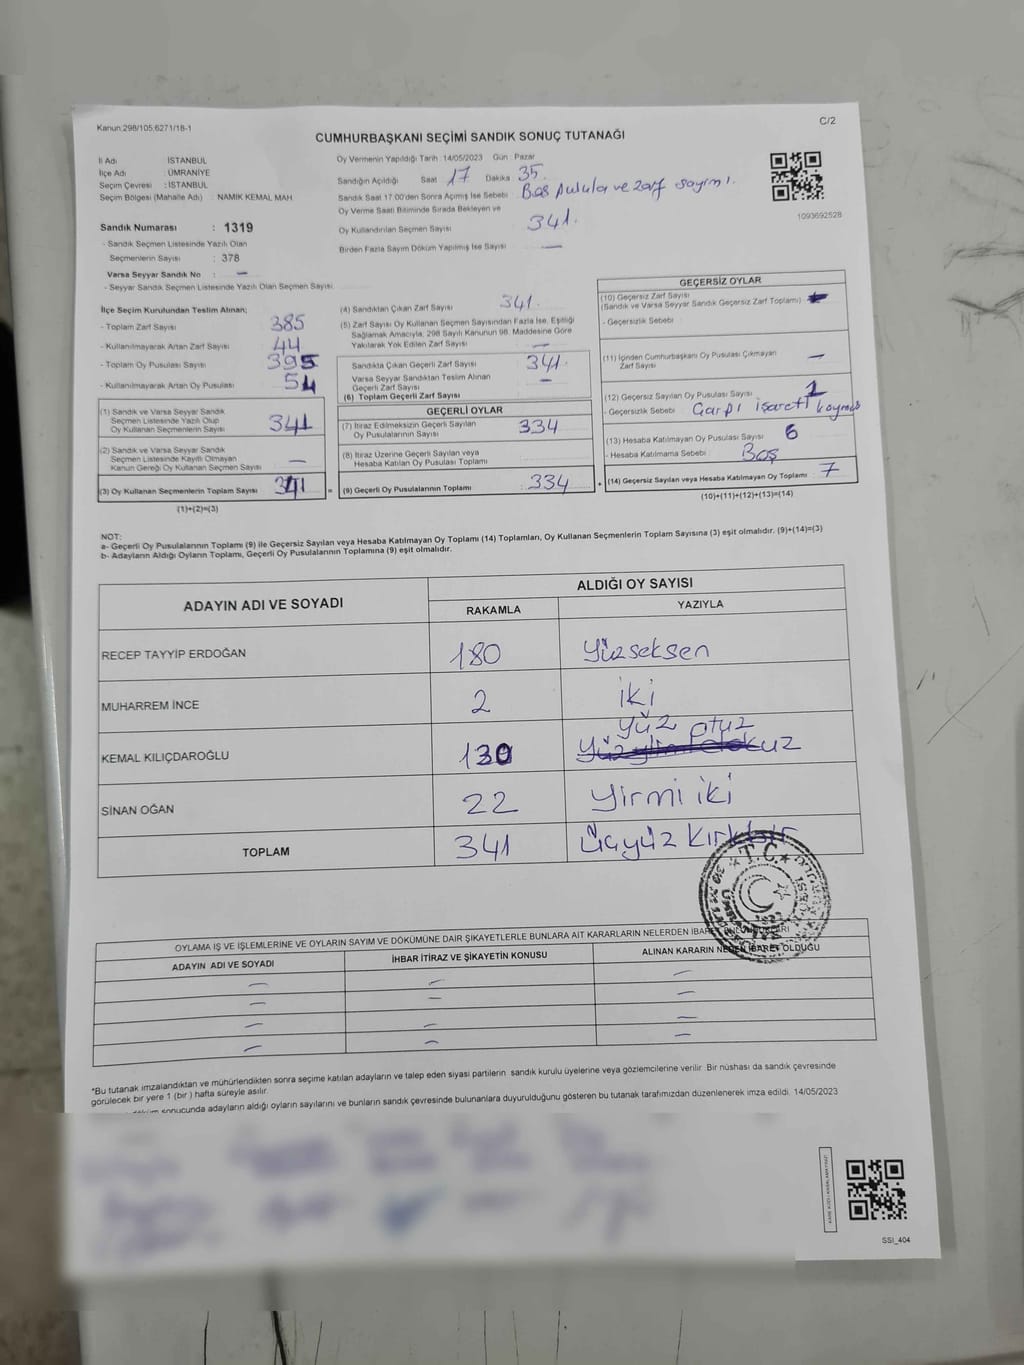 Kanun:298/105,6271/18-1
C/2
CUMHURBAŞKANI SEÇİMİ SANDIK SONUÇ TUTANAĞI
İl Adı : İSTANBUL
İlçe Adı : ÜMRANİYE
Seçim Çevresi : İSTANBUL
Seçim Bölgesi (Mahalle Adı) : NAMIK KEMAL MAH.
Sandık Numarası : 1319
- Sandık Seçmen Listesinde Yazılı Olan
Seçmenlerin Sayısı : 378
Varsa Seyyar Sandık No : –
- Seyyar Sandık Seçmen Listesinde Yazılı Olan Seçmen Sayısı:
Oy Vermenin Yapıldığı Tarih :14/05/2023 Gün : Pazar
Sandığın Açıldığı Saat 17 Dakika : 35
Sandık Saat 17:00'den Sonra Açılmış İse Sebebi : Boş pulula ve zarf sayımı.
Oy Verme Saati Bitiminde Sırada Bekleyen ve
Oy Kullandırılan Seçmen Sayısı 341.
Birden Fazla Sayım Döküm Yapılmış İse Sayısı : —
1093692528
İlçe Seçim Kurulundan Teslim Alınan;
- Toplam Zarf Sayısı 385
- Kullanılmayarak Artan Zarf Sayısı 44
- Toplam Oy Pusulası Sayısı 395
- Kullanılmayarak Artan Oy Pusulası 54
(1) Sandık ve Varsa Seyyar Sandık
Seçmen Listesinde Yazılı Olup
Oy Kullanan Seçmenlerin Sayısı 341
(2) Sandık ve Varsa Seyyar Sandık
Seçmen Listesinde Kayıtlı Olmayan
Kanun Gereği Oy Kullanan Seçmen Sayısı –
(3) Oy Kullanan Seçmenlerin Toplam Sayısı 341
(1)+(2)=(3)
(4) Sandıktan Çıkan Zarf Sayısı 341.
(5) Zarf Sayısı Oy Kullanan Seçmen Sayısından Fazla İse, Eşitliği
Sağlamak Amacıyla; 298 Sayılı Kanunun 98. Maddesine Göre
Yakılarak Yok Edilen Zarf Sayısı —
Sandıkta Çıkan Geçerli Zarf Sayısı 341.
Varsa Seyyar Sandıktan Teslim Alınan
Geçerli Zarf Sayısı –
(6) Toplam Geçerli Zarf Sayısı
GEÇERLİ OYLAR
(7) İtiraz Edilmeksizin Geçerli Sayılan
Oy Pusulalarının Sayısı 334
(8) İtiraz Üzerine Geçerli Sayılan veya
Hesaba Katılan Oy Pusulası Toplamı
= (9) Geçerli Oy Pusulalarının Toplamı : 334 +
GEÇERSİZ OYLAR
(10) Geçersiz Zarf Sayısı
(Sandık ve Varsa Seyyar Sandık Geçersiz Zarf Toplamı)
- Geçersizlik Sebebi :
(11) İçinden Cumhurbaşkanı Oy Pusulası Çıkmayan
Zarf Sayısı —
(12) Geçersiz Sayılan Oy Pusulası Sayısı 1
- Geçersizlik Sebebi : Çarpı işareti koymuş
(13) Hesaba Katılmayan Oy Pusulası Sayısı : 6
- Hesaba Katılmama Sebebi : Boş
(14) Geçersiz Sayılan veya Hesaba Katılmayan Oy Toplamı : 7
(10)+(11)+(12)+(13)=(14)
NOT:
a- Geçerli Oy Pusulalarının Toplamı (9) ile Geçersiz Sayılan veya Hesaba Katılmayan Oy Toplamı (14) Toplamları, Oy Kullanan Seçmenlerin Toplam Sayısına (3) eşit olmalıdır. (9)+(14)=(3)
b- Adayların Aldığı Oyların Toplamı, Geçerli Oy Pusulalarının Toplamına (9) eşit olmalıdır.
ADAYIN ADI VE SOYADI
ALDIĞI OY SAYISI
RAKAMLA YAZIYLA
RECEP TAYYİP ERDOĞAN 180 Yüzseksen
MUHARREM İNCE 2 iki
KEMAL KILIÇDAROĞLU 130 yüz otuz
SİNAN OĞAN 22 Yirmi iki
TOPLAM 341 Üçyüz kırkbir
T.C.
OYLAMA İŞ VE İŞLEMLERİNE VE OYLARIN SAYIM VE DÖKÜMÜNE DAİR ŞİKAYETLERLE BUNLARA AİT KARARLARIN NELERDEN İBARET BULUNDUKLARI
ADAYIN ADI VE SOYADI İHBAR İTİRAZ VE ŞİKAYETİN KONUSU ALINAN KARARIN NEDEN İBARET OLDUĞU
*Bu tutanak imzalandıktan ve mühürlendikten sonra seçime katılan adayların ve talep eden siyasi partilerin sandık kurulu üyelerine veya gözlemcilerine verilir. Bir nüshası da sandık çevresinde
görülecek bir yere 1 (bir) hafta süreyle asılır.
sonucunda adayların aldığı oyların sayılarını ve bunların sandık çevresinde bulunanlara duyurulduğunu gösteren bu tutanak tarafımızdan düzenlenerek imza edildi. 14/05/2023
SSI_404